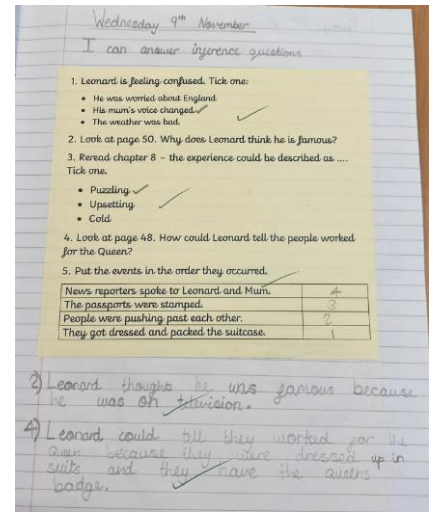 Wednesday 9th November
I can answer inference questions
1. Leonard is feeling confused. Tick one:
• He was worried about England
• His mum's voice changed.
• The weather was bad.
2. Look at page 50. Why does Leonard think he is famous?
3. Reread chapter 8 – the experience could be described as ....
Tick one.
• Puzzling
• Upsetting
• Cold
4. Look at page 48. How could Leonard tell the people worked
for the Queen?
5. Put the events in the order they occurred.
News reporters spoke to Leonard and Mum. 4
The passports were stamped. 3
People were pushing past each other. 2
They got dressed and packed the suitcase. 1
2) Leonard thought he was famous because
he was on television.
4) Leonard could tell they worked for the
Queen because they were dressed up in
suits and they have the queens
badge.